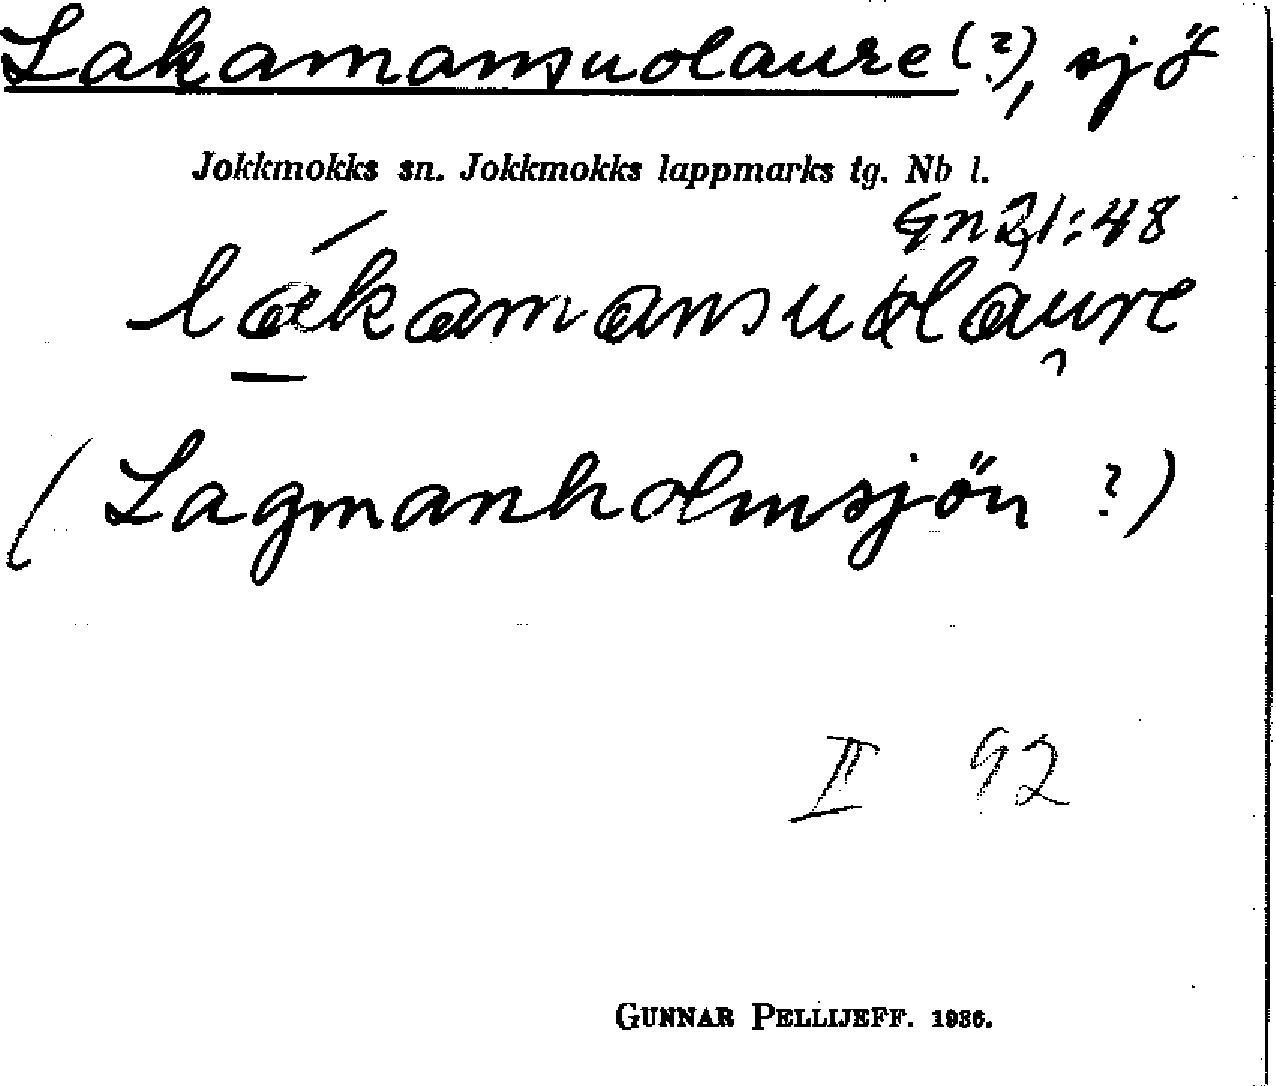 Lakamansuolaure (?), sjö
Jokkmokks sn. Jokkmokks lappmarks tg. Nb l.
Gn 21:48
lákamansuolau̯re
(Lagmanholmsjön ?)
II 92
GUNNAR PELLIJEFF. 1936.